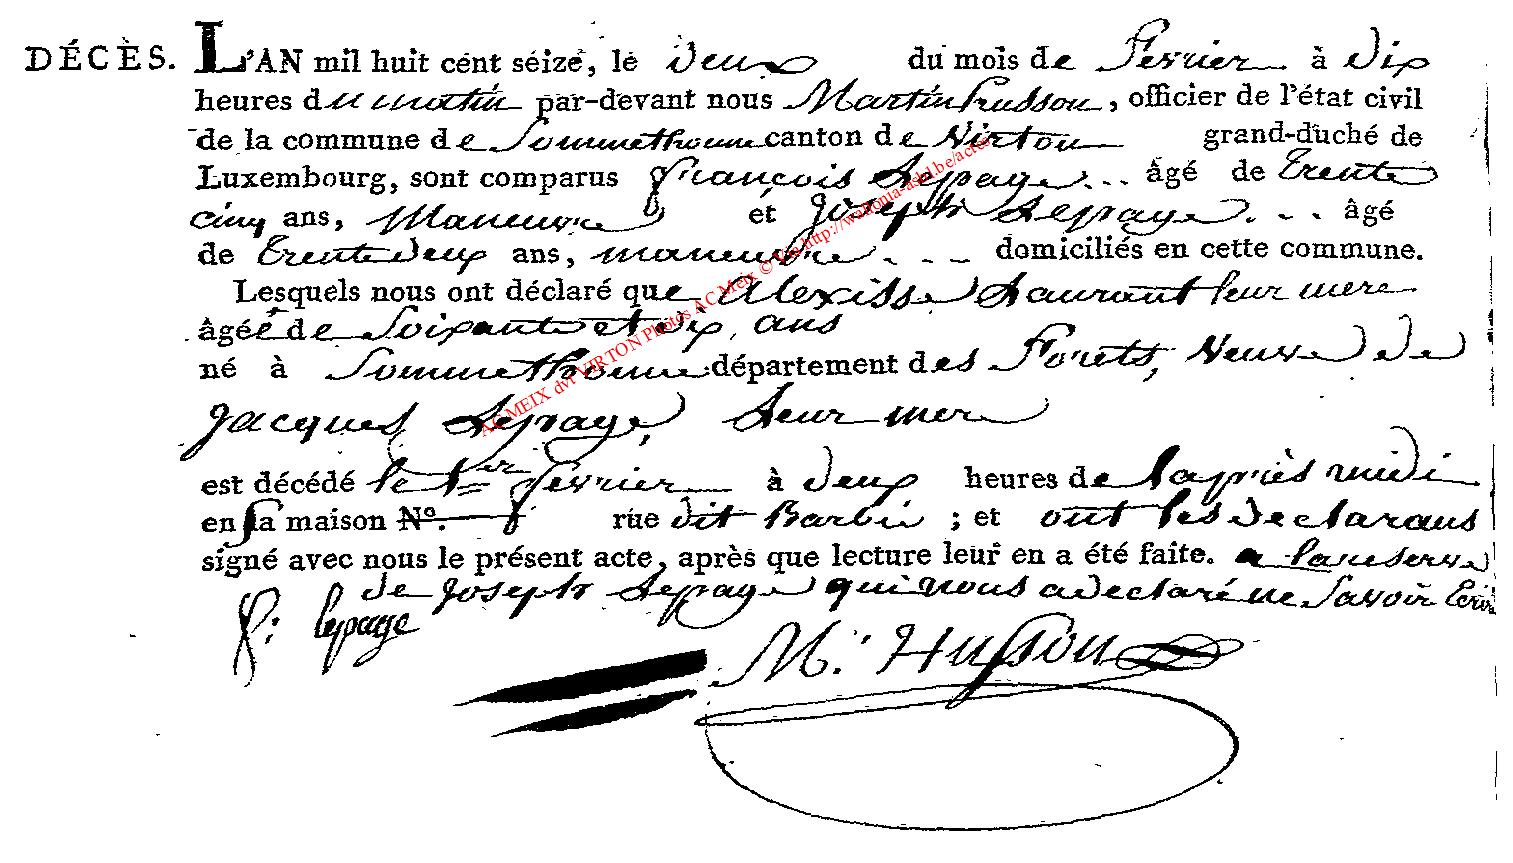 DÉCÈS. L'AN mil huit cent séize, le deux du mois de fevrier à dix
heures du matin par-devant nous Martin husson, officier de l'état civil
de la commune de Sommethonne canton de Virton grand-duché de
Luxembourg, sont comparus françois Lepage... âgé de trente
cinq ans, Maneuvre et Joseph Lepage... âgé
de trente deux ans, maneuvre... domiciliés en cette commune.
Lesquels nous ont déclaré que Alexisse Laurant leur mere
âgéé de Soixante et dix ans
né à Sommethonne département des Forets, Veuve de
Jacques Lepage, Leur mere
est décédé le 1er fevrier à deux heures de laprès midi
en sa maison N°. rue dit Barbü ; et ont les declarans
signé avec nous le présent acte, après que lecture leur en a été faite. a lareserve
de Joseph Lepage qui nous a declaré ne Savoir Ecrir
f: lepage
M. Husson
AC MEIX dvt VIRTON Photos AC Meix © via http://wallonia-asbl.be/actes